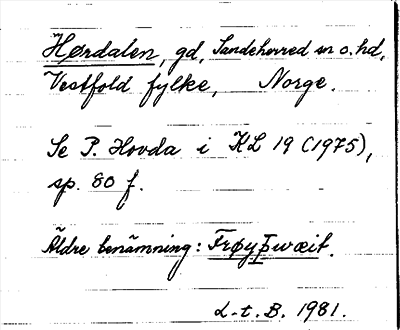 Hørdalen, gd, Sandeherred sn o. hd,
Vestfold fylke, Norge.
Se P. Hovda i KL 19 (1975),
sp. 80 f.
Äldre benämning: Frøyþwæit.
L-t. B. 1981.